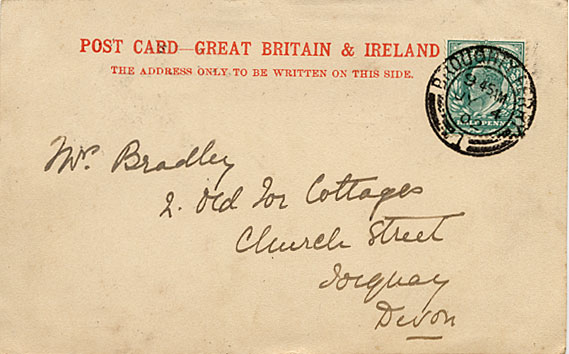 POST CARD—GREAT BRITAIN & IRELAND
THE ADDRESS ONLY TO BE WRITTEN ON THIS SIDE.
BROUGHTY FERRY
9 45AM
4
Mr. Bradley
2. Old Tor Cottages
Church Street
Torquay
Devon